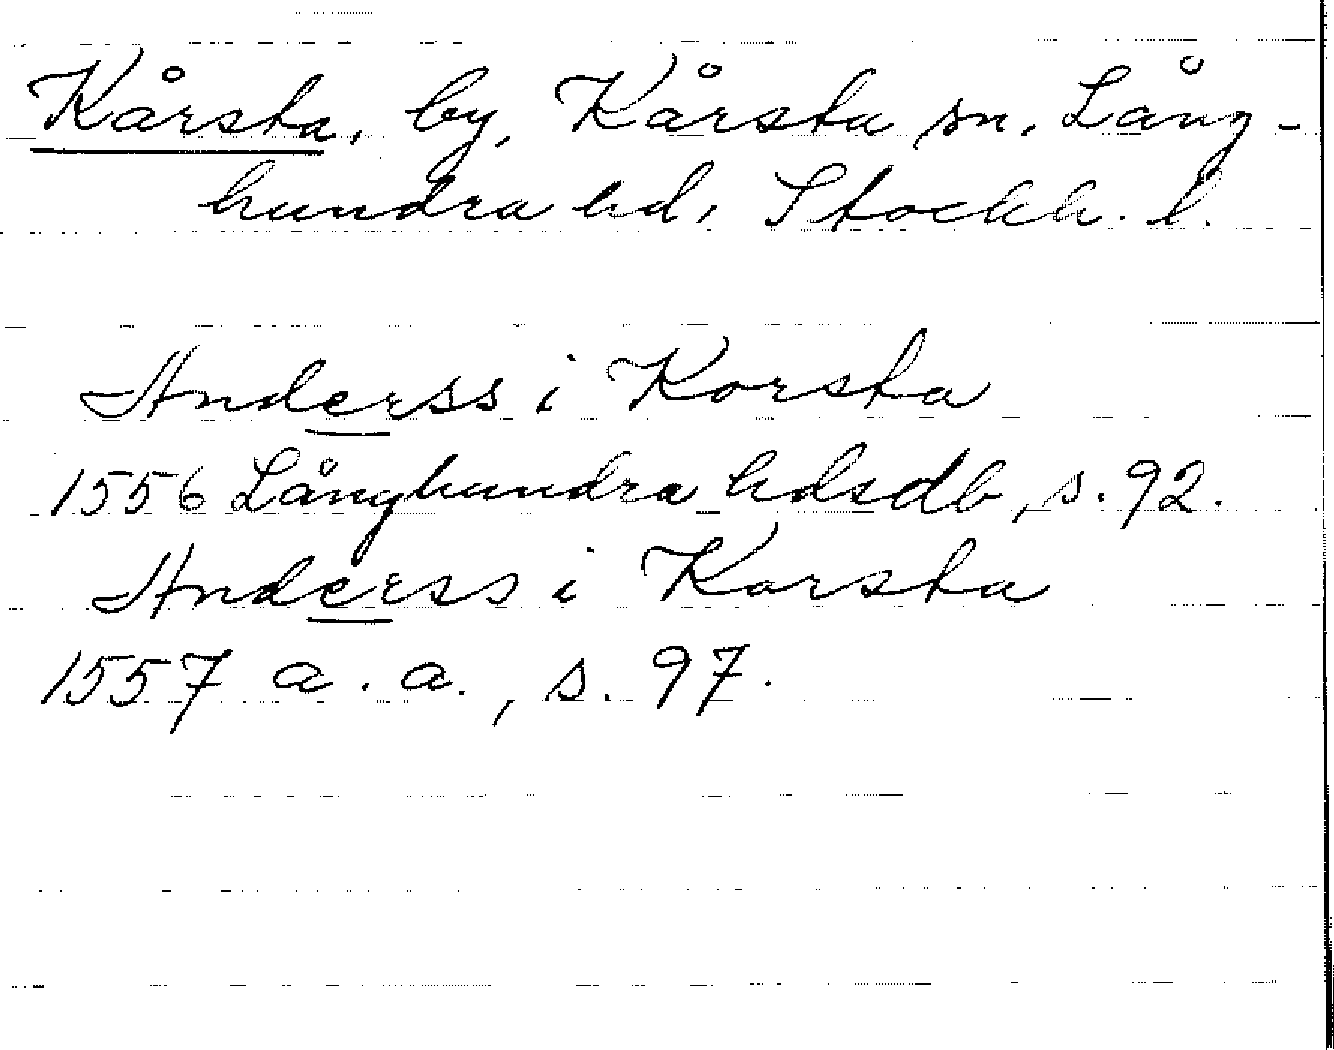 Kårsta, by, Kårsta sn. Lång-
hundra hd, Stockh. l.
Anderss i Korsta
1556 Långhundra hdsdb, s. 92.
Anderss i Karsta
1557 a. a., s. 97.